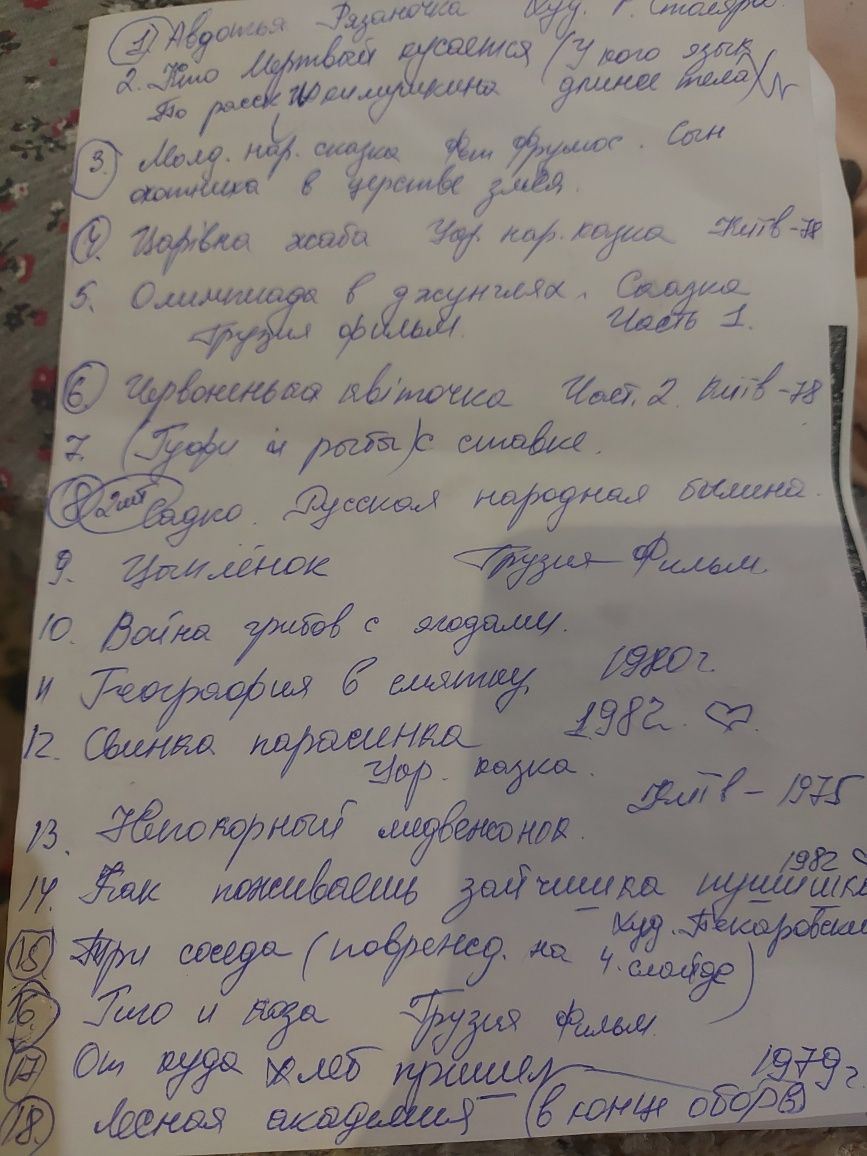 1. Авдотья Рязаночка Худ. Г. Столяро
2. Кто Мертвый кусается (У кого язык
По расск Акимушкина длинее тела)
3. Молд. нар. сказка Фэт Фрумос. Сын
охотника в царстве змея.
4. Царівна жаба Укр. нар. казка Київ-78
5. Олимпиада в джунглях. Сказка
Грузия фильм. Часть 1.
6. Червоненька квіточка Част. 2. Київ-78
7. (Гуфи и рыбы) с ставке.
8. 2шт Садко. Русская народная былина.
9. Цыплёнок Грузия-Фильм.
10. Война грибов с ягодами.
11 География в смятку 1980г.
12. Свинка парасинка 1982.
Укр. казка.
13. Непокорный медвежонок. Київ-1975
14. Как поживаешь зайчишка пушишка 1982
15. Три соседа (повренжд. на Худ. Бекаровский
4. слайде)
16. Гило и коза Грузия Фильм.
17 От куда хлеб пришел 1979г.
18. Лесная академия (в конце оборв)